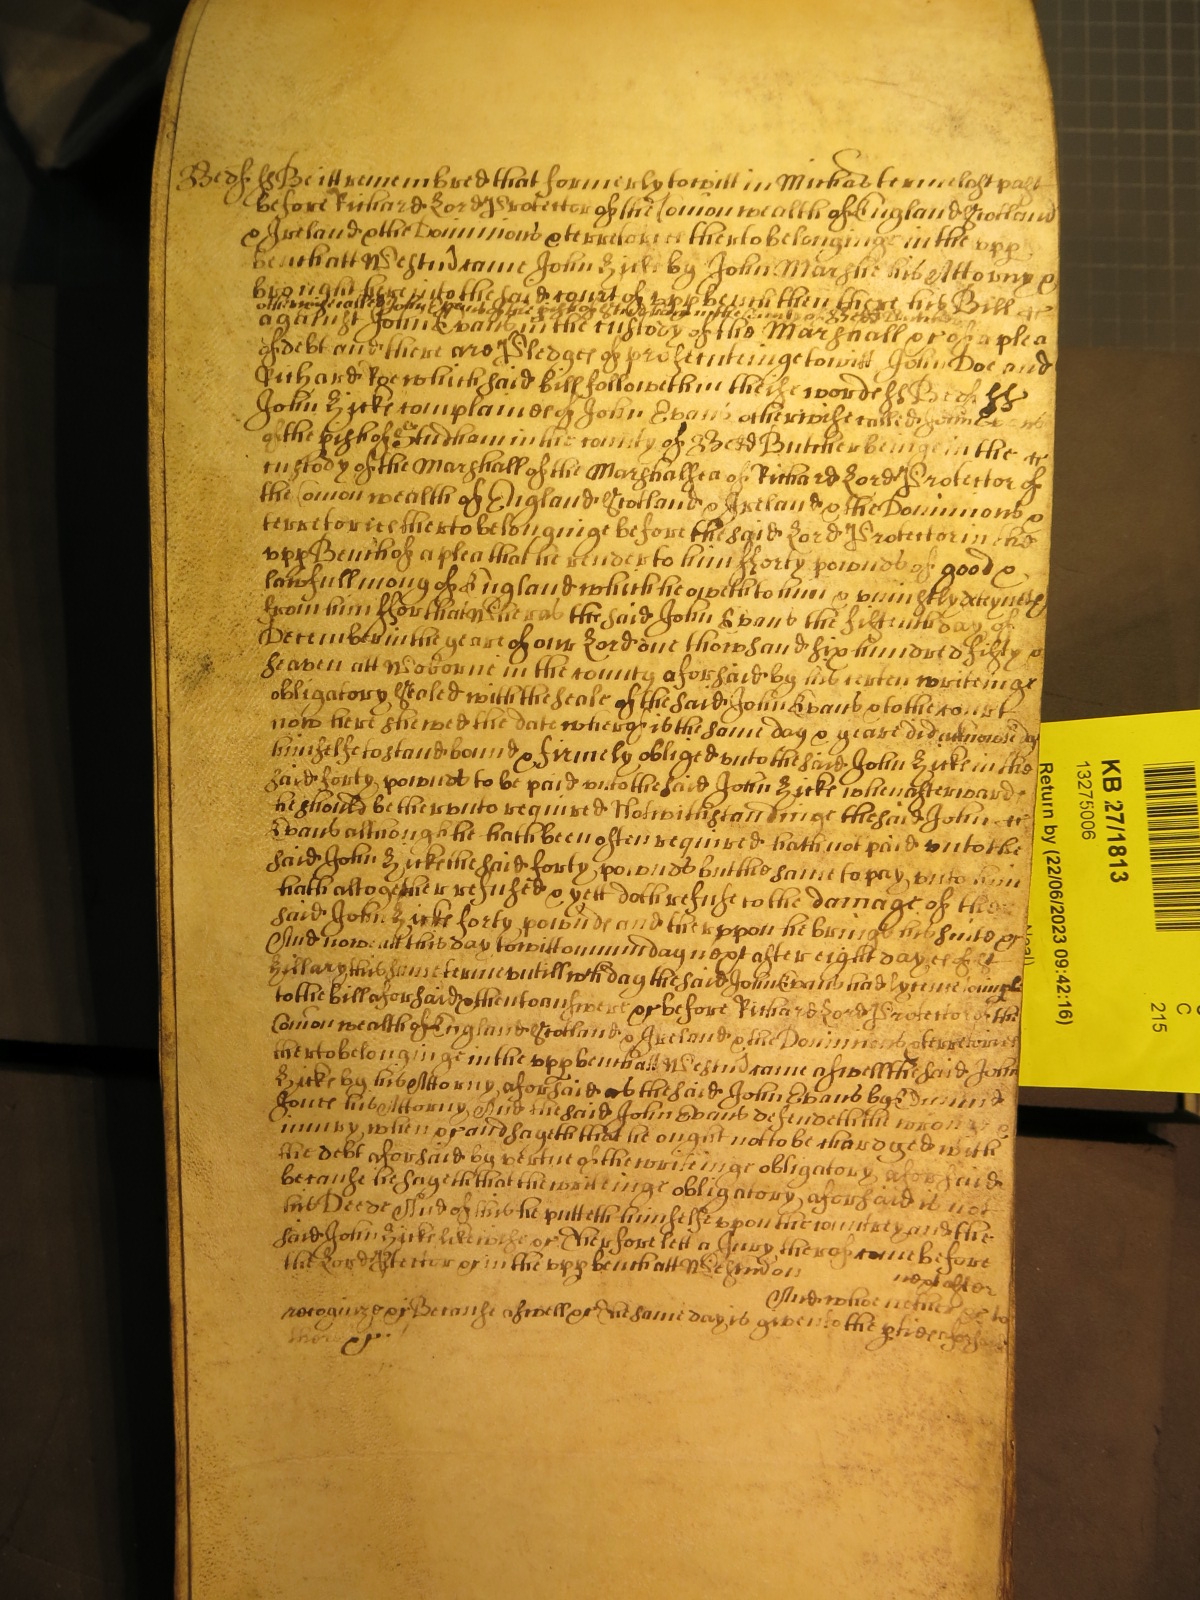 Bedf ss Be itt remembred that formerly to witt in Michās terme last past
before Richard Lord Protector of the Comon wealth of England Scotland
& Ireland & the Dominions & terretories therto belonginge in the upp
bench att Westmr came John Hicke by John Marshe his Attorny &
brought here into the said court of upp bench then there his Bill
otherwise called John Evans of the pish of Studham in the county of Bedd Butcher
against John Evans in the custody of the Marshall &c of a plea
of debt and there are Pledges of prosecuteinge to witt John Doe and
Richard Roe which said bill followeth in theise words ss Bedf ss
John Hicke complaines of John Evans otherwise called John Evans
of the pish of Studham in the county of Bedd Butcher beinge in the
custody of the Marshall of the Marshallsea of Richard Lord Protector of
the Comon wealth of England Scotland & Ireland & the Dominions &
terretories therto belonginge before the said Lord Protector in the
upp Bench of a plea that he render to him fforty pownds of good &
lawfull mony of England which he oweth to him & uniustly deteyneth
from him ffor that Wheras the said John Evans the fifteenth day of
December in the yeare of our Lord one thowsand six hundred fifty &
seaven att Woborne in the county aforsaid by his certen writeinge
obligatory Sealed with the seale of the said John Evans & to the court
now here shewed the date wherof is the same day & yeare did acknowledg
himselfe to stand bound & firmely obliged unto the said John Hicke in the
said forty pownds to be paid unto the said John Hicke when afterward
he should be therunto required Notwithstandinge the said John
Evans although he hath been often required hath not paid unto the
said John Hicke the said forty pownds but the same to pay unto him
hath altogether refused & yett doth refuse to the damage of the
said John Hicke forty pownds and theruppon he brings his suite &c
And now att this day to witt on munday next after eight dayes of St
Hillary this same terme untill wch day the said John Evans had lycence to imple
to the bill aforsaid & then to answere &c before Richard Lord Protector of the
Comon wealth of England Scotland & Ireland & the Dominions & terretories
therto belonginge in the upp bench att Westmr came aswell the said John
Hicke by his Attorny aforsaid as the said John Evans by Edmund
Jones his Attorny And the said John Evans defendeth the wronge &
iniury when &c and sayeth that he ought not to be chardged with
the debt aforsaid by vertue of the writeinge obligatory aforsaid
because he sayeth that the writeinge obligatory aforsaid is not
his Deede And of this he putteth himselfe upon the countrey and the
said John Hicke likewise &c Therfore lett a Jury therof come before
the Lord Ptector &c in the upp bench att Westmr on next after
And who neither &c to
recognize &c Because aswell &c The same day is given to the pties aforsaid
there &c
KB 27/1813
13275006
Return by (22/06/2023 09:42:16)
C
215